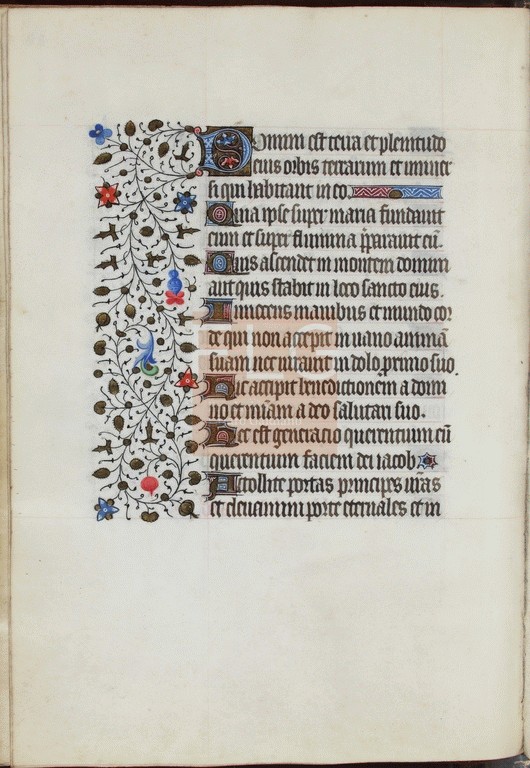 Domini est terra et plenitudo
eius orbis terrarum et univer
si qui habitant in eo.
Quia ipse super maria fundavit
eum et super flumina p̄paravit eū.
Quis ascendet in montem domini
aut quis stabit in loco sancto eius.
Innocens manibus et mundo cor
de qui non accepit in vano animā
suam nec iuravit in dolo p̄ximo suo.
Hic accipiet benedictionem a domi
no et mīam a deo salutari suo.
Hec est generatio querentium eū
querentium faciem dei iacob
Attollite portas principes vr̄as
et elevamini porte eternales et in